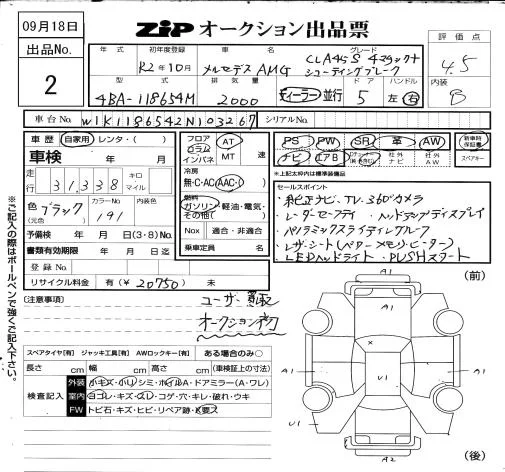 09月18日
ZIP オークション出品票
出品No.
2
評価点
4.5
内装
B
年式 初年度登録 車名 グレード
R2年10月 メルセデスAMG CLA45S 4マチック+
シューティングブレーク
型式 排気量 ドア ハンドル
4BA-118654M 2000 ディーラー・並行 5 左・右
車台No. W1K1186542N103267 シリアルNo.
車歴 自家用・レンタ・( )
車検 年 月
走行 31,338 キロ マイル
色(元色) ブラック カラーNo. 191
予備検 年 月 日(3・8)No.
書類有効期限 年 月 日迄
登録No.
リサイクル料金 有(¥ 20750 ) 未
フロア コラム インパネ AT MT 速
冷房 無・C・AC・AAC・( )
燃料 ガソリン・軽油・電気・その他( )
Nox 適合・非適合
乗車定員 名
PS PW SR 革 AW
ナビ エアB 社外ナビ 社外AW
新車時保証書
スペアキー
*上記太枠内は標準装備品
セールスポイント
・純正ナビ、TV、360°カメラ
・レーダーセーフティ ・ヘッドアップディスプレイ
・パノラミックスライディングルーフ
・レザーシート(パワー メモリ・ヒーター)
・LEDヘッドライト ・PUSHスタート
(注意事項)
ユーザー買取
オークション初
(前)
A1
A1
X
U1
A1
A1
U1
A1
(後)
スペアタイヤ【有】 ジャッキ工具【有】 AWロックキー【有】 ある場合のみ○
長さ cm 幅 cm 高さ cm (車検証上の寸法)
検査記入
外装 小キズ・小凹・シミ・ホイルA・ドアミラー(A・ワレ)
室内 ヨゴレ・キズ・スレ・コゲ・穴・キレ・破れ・ウキ
FW トビ石・キズ・ヒビ・リペア跡・X要ス
※ご記入の際はボールペンで強くご記入下さい。